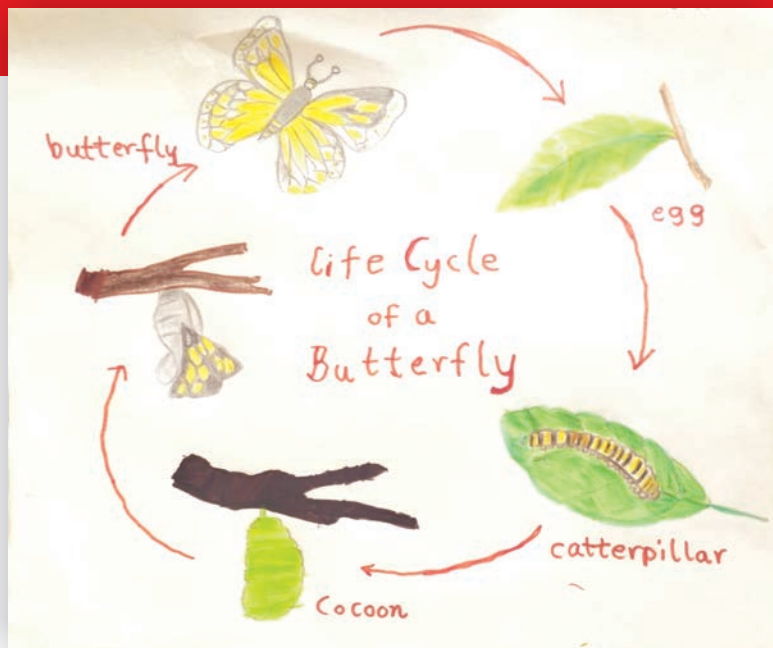 butterfly
egg
Life Cycle
of a
Butterfly
catterpillar
Cocoon